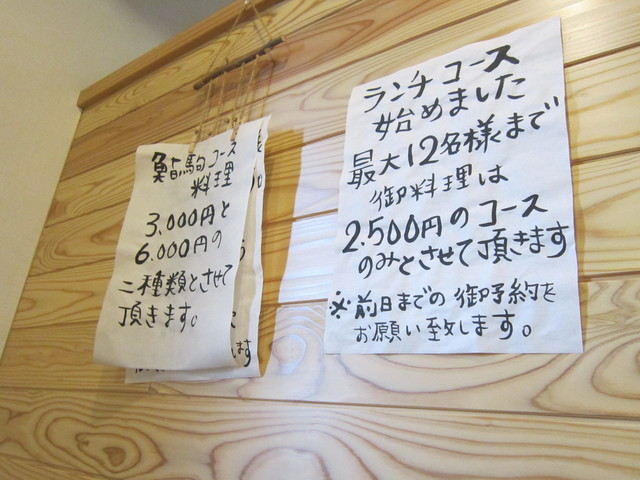 鮨駒コース
料理
3,000円と
6,000円の
二種類とさせて
頂きます。
ます
ランチコース
始めました
最大12名様まで
御料理は
2,500円のコース
のみとさせて頂きます
※前日までの御予約を
お願い致します。